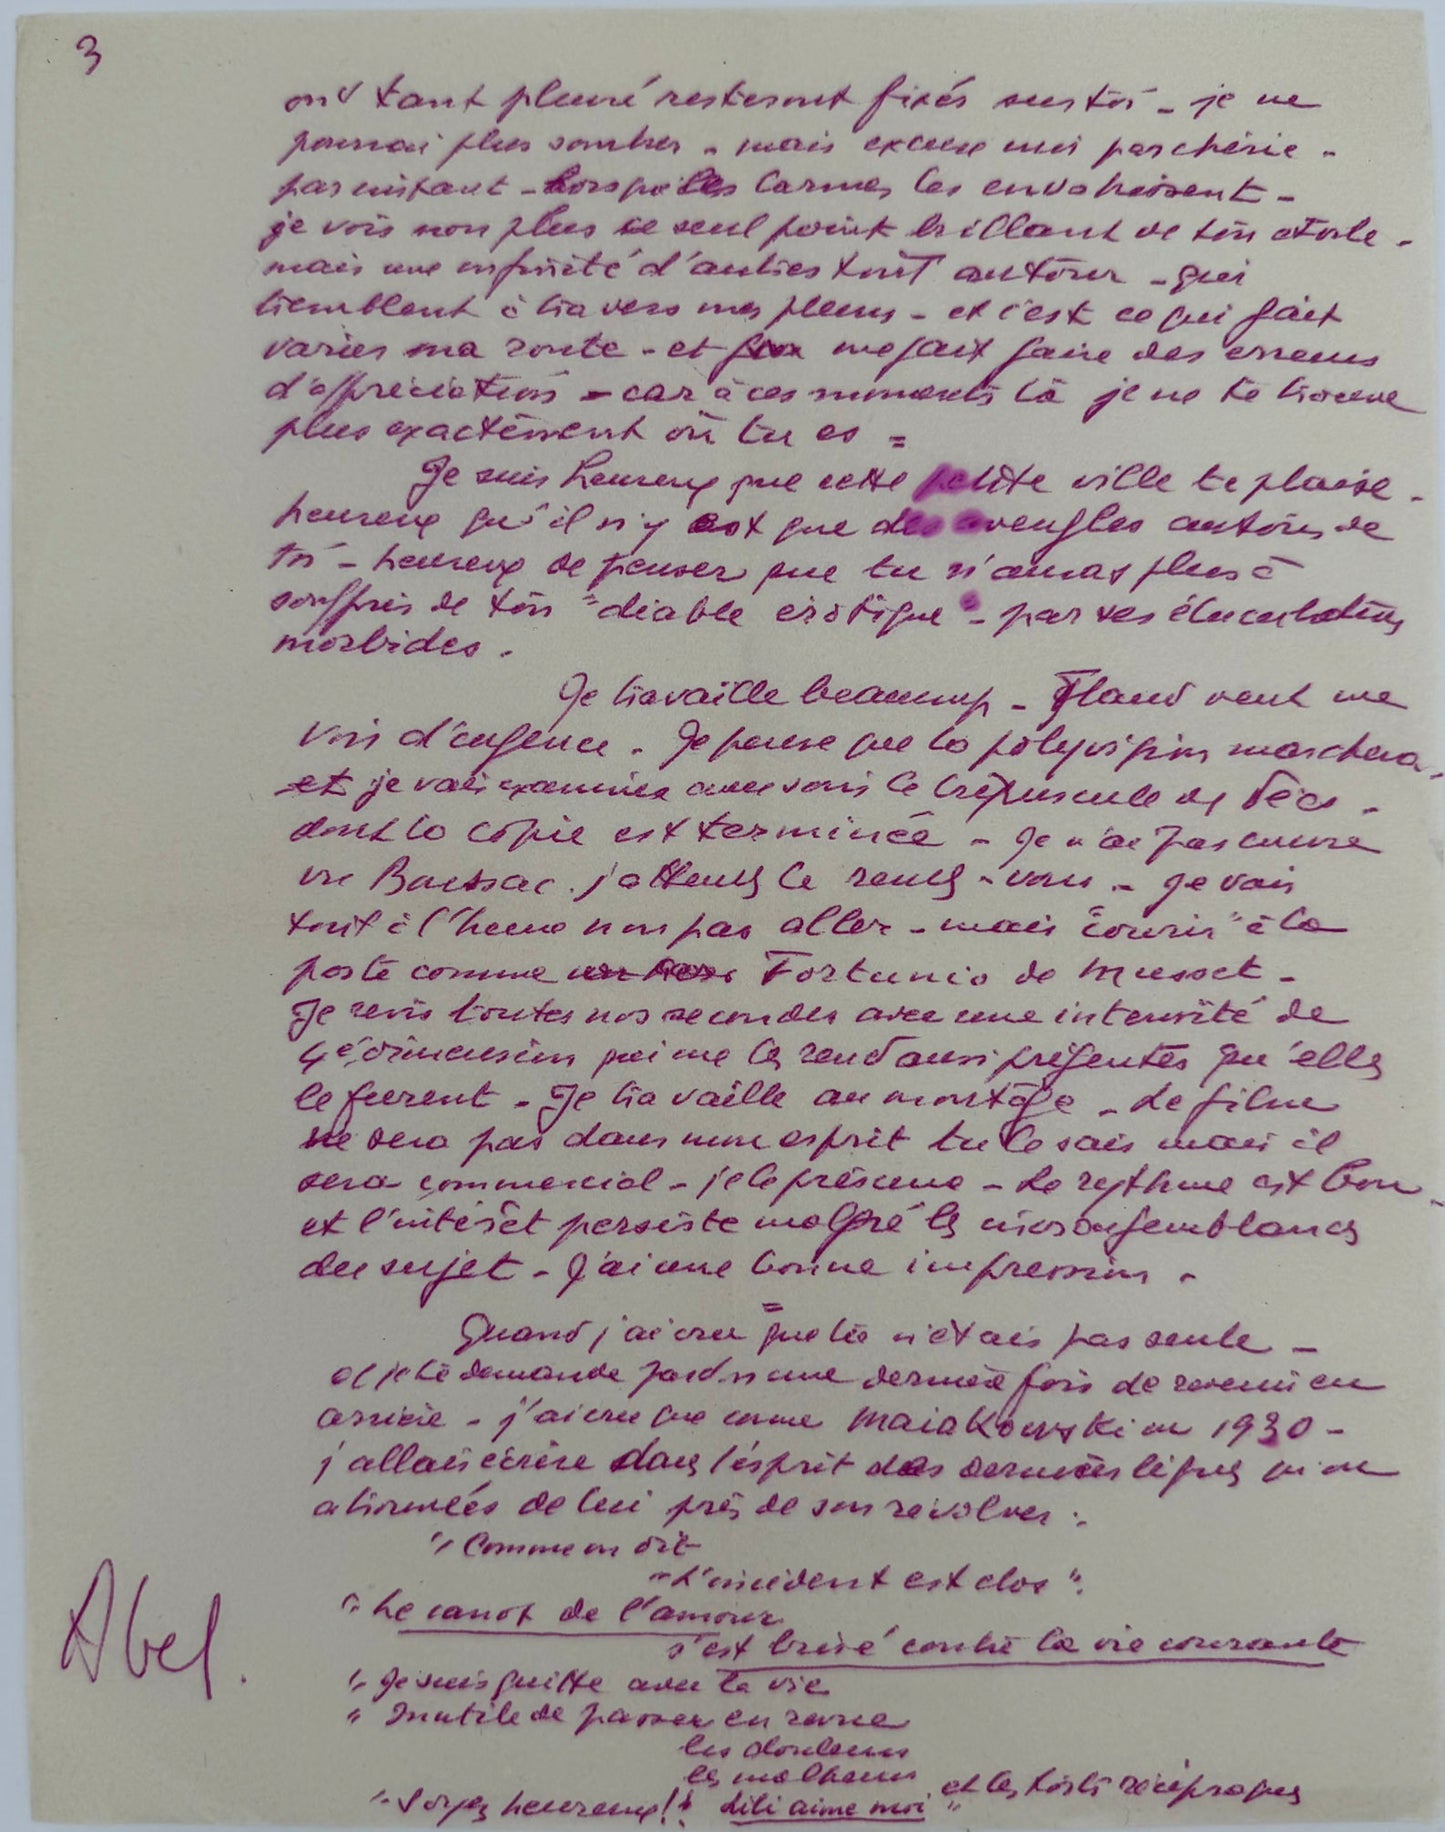 3
ont tant pleuré resteront fixés sur toi - je ne
pourrai plus sombrer - mais excuse moi par chérie -
par instant - lorsque les larmes les envahissent -
je vois non plus ce seul point brillant de ton étoile -
mais une infinité d'autres tout autour - qui
tremblent à travers mes pleurs - et c'est ce qui fait
varier ma route - et me fait faire des erreurs
d'appréciation - car à ces moments là je ne te trouve
plus exactement où tu es =
Je suis heureux que cette petite ville te plaise -
heureux qu'il n'y est que des aveugles autour de
toi - heureux de penser que tu n'auras plus à
souffrir de ton "diable érotique" - par ses élucubrations
morbides.
Je travaille beaucoup - veut me
voir d'urgence. Je pense que la polyvision marchera -
et je vais examiner avec soin le crépuscule des Fées -
dont la copie est terminée - Je n'ai pas encore
vu Boussac. j'attends le rendez-vous - Je vais
tout à l'heure non pas aller - mais "courir" à la
poste comme Fortunio de Musset -
Je revis toutes nos secondes avec une intensité de
4e dimension qui me les rend aussi présentes qu'elles
le furent - Je travaille au montage - Le film
ne sera pas dans mon esprit tu le sais mais il
sera commercial - je le présume - Le rythme est bon -
et l'intérêt persiste malgré les invraisemblances
du sujet - J'ai une bonne impression -
=
Quand j'ai cru que tu n'étais pas seule -
et je te demande pardon une dernière fois de revenir en
arrière - j'ai cru que comme Maiakowski en 1930 -
j'allais écrire dans l'esprit des dernières lignes qu'on
a trouvées de lui près de son revolver :
" Comme on dit
"L'incident est clos".
" Le canot de l'amour
s'est brisé contre la vie courante
" Je suis quitte avec la vie
" Inutile de passer en revue
les douleurs
les malheurs
et les torts réciproques
" Soyez heureux!! Lili aime moi "
Abel.